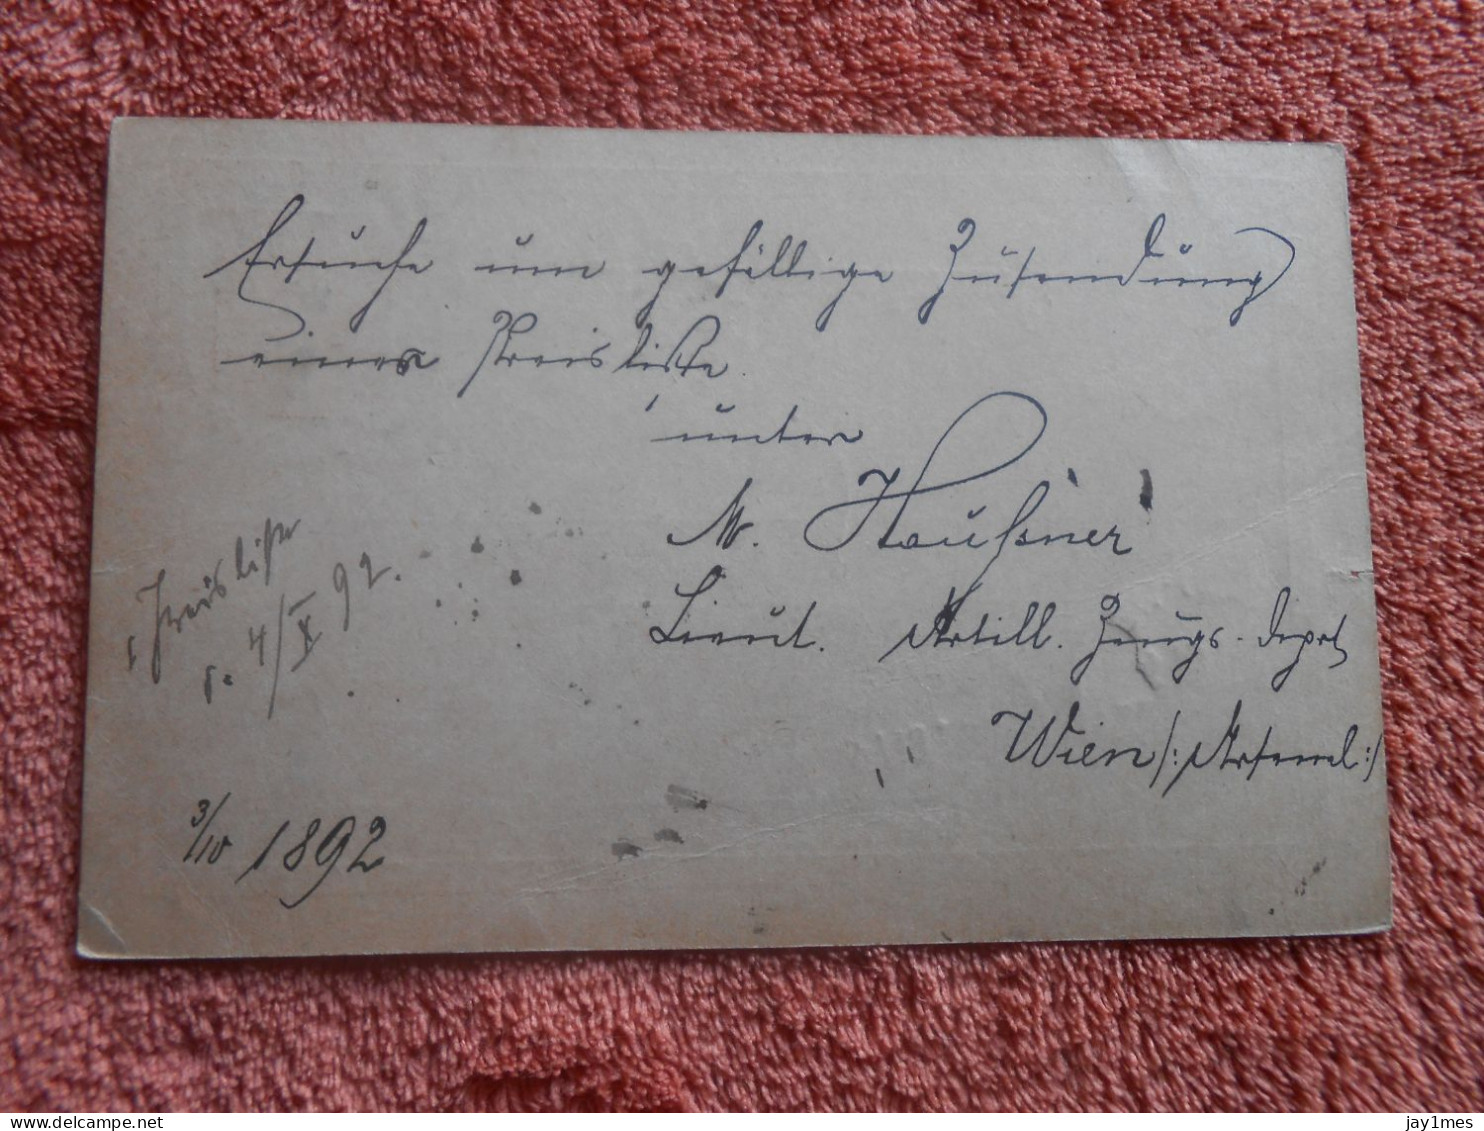 Ersuche um gefällige Zusendung
einer Preisliste.
unter
M. Haußner
Lieut. Artill. Zeugs-Depot
Wien /: Arsenal :/
Preisliste
4/X 92.
3/10 1892
delcampe.net
jay1mes